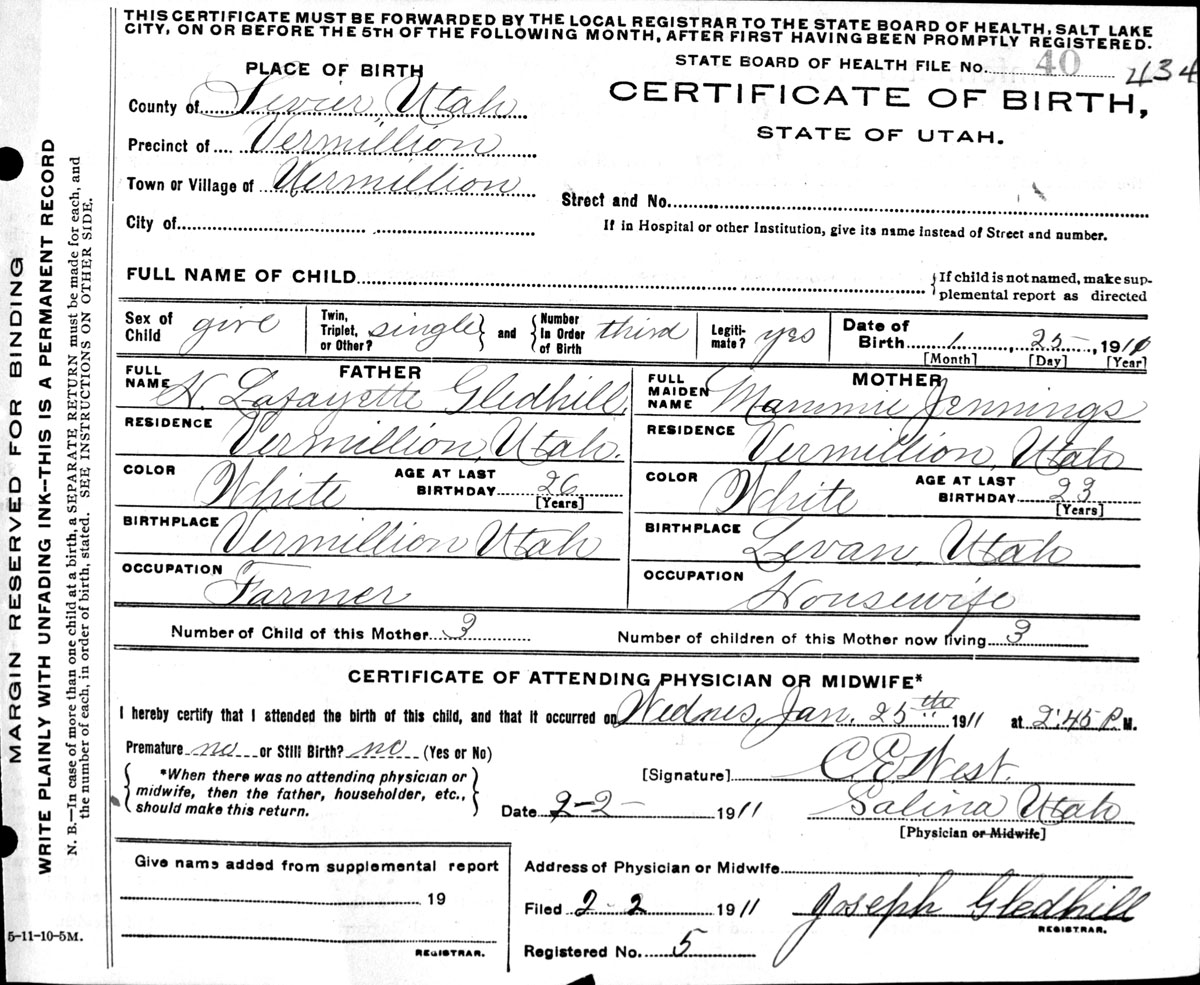 THIS CERTIFICATE MUST BE FORWARDED BY THE LOCAL REGISTRAR TO THE STATE BOARD OF HEALTH, SALT LAKE
CITY, ON OR BEFORE THE 5TH OF THE FOLLOWING MONTH, AFTER FIRST HAVING BEEN PROMPTLY REGISTERED.
STATE BOARD OF HEALTH FILE No. 40 434
PLACE OF BIRTH
CERTIFICATE OF BIRTH,
STATE OF UTAH.
County of Sevier, Utah
Precinct of Vermillion
Town or Village of Vermillion
Street and No.
City of
If in Hospital or other Institution, give its name instead of Street and number.
FULL NAME OF CHILD
{If child is not named, make sup-
plemental report as directed
Sex of Child girl
Twin, Triplet, or Other? single} and {Number In Order of Birth third
Legiti-mate? yes
Date of Birth 1, 25, 1911
[Month] [Day] [Year]
FATHER
FULL NAME H. Lafayette Gledhill
RESIDENCE Vermillion, Utah.
COLOR White AGE AT LAST BIRTHDAY 26 [Years]
BIRTHPLACE Vermillion Utah
OCCUPATION Farmer
MOTHER
FULL MAIDEN NAME Mammie Jennings
RESIDENCE Vermillion, Utah
COLOR White AGE AT LAST BIRTHDAY 23 [Years]
BIRTHPLACE Levan, Utah
OCCUPATION Housewife
Number of Child of this Mother 3 Number of children of this Mother now living 3
CERTIFICATE OF ATTENDING PHYSICIAN OR MIDWIFE*
I hereby certify that I attended the birth of this child, and that it occurred on Wednes, Jan. 25th 1911 at 2:45 P. M.
Premature no or Still Birth? no (Yes or No)
{*When there was no attending physician or
midwife, then the father, householder, etc.,
should make this return.}
[Signature] C.E. West.
Date 2-2- 1911 Salina Utah
[Physician or Midwife]
Give name added from supplemental report
19
REGISTRAR.
Address of Physician or Midwife
Filed 2 2 1911 Joseph Gledhill
REGISTRAR.
Registered No. 5
5-11-10-5M.
MARGIN RESERVED FOR BINDING
WRITE PLAINLY WITH UNFADING INK--THIS IS A PERMANENT RECORD
N. B.—In case of more than one child at a birth, a SEPARATE RETURN must be made for each, and
the number of each, in order of birth, stated. SEE INSTRUCTIONS ON OTHER SIDE.